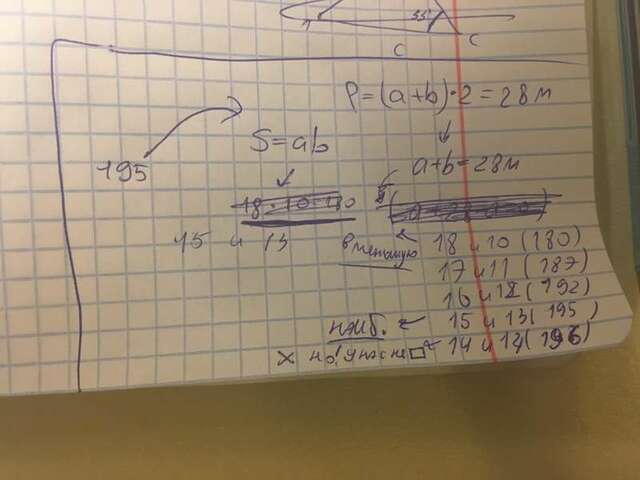 55°
C
C
P=(a+b)·2=28м
S=ab
195
a+b=28м
18·10=180
15 и 13
18 и 10 (180)
17 и 11 (187)
16 и 12 (192)
наиб. ← 15 и 13 (195)
x но! у нас не □ 14 и 14 (196)